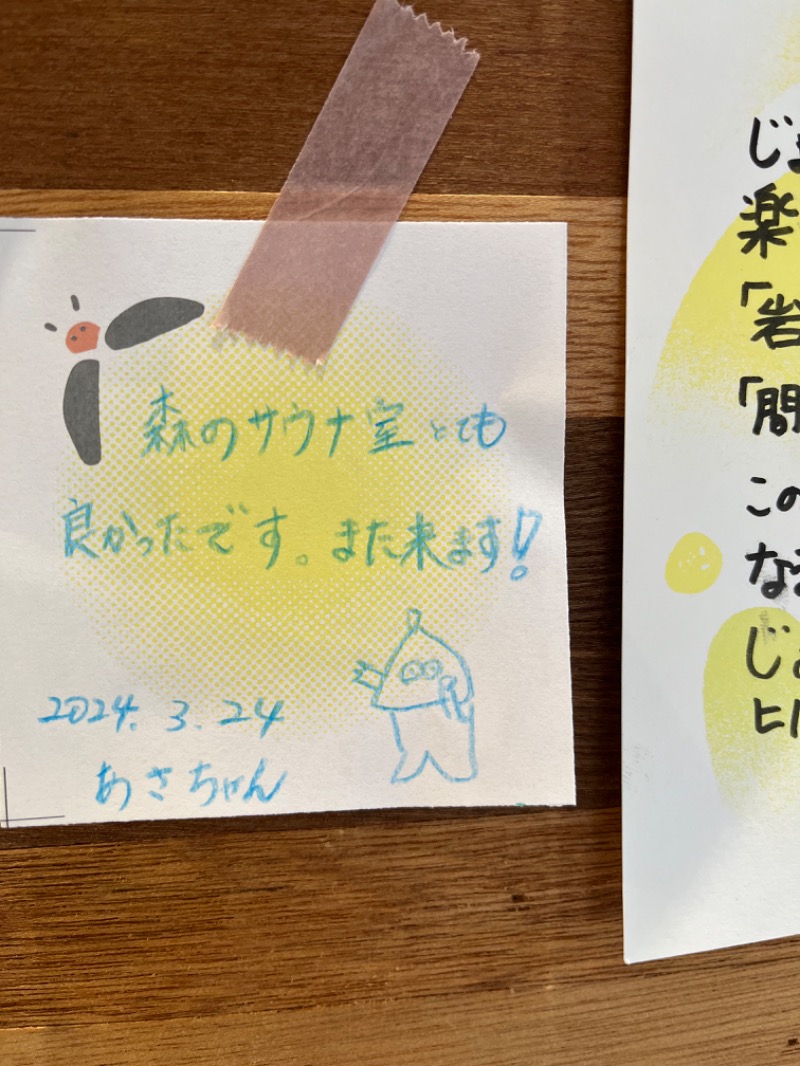 森のサウナ室とても
良かったです。また来ます!
2024.3.24
あさちゃん
じ
楽
「岩
「間
この
な
じ
ヒ